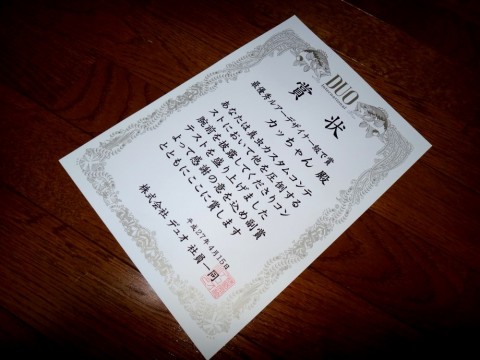 DUO
賞状
最優秀ルアーデザイナー組て賞
カッちゃん 殿
あなたは真虫カスタムコンテ
ストにおいて他を圧倒する
腕前を披露してくださりコン
テストを盛り上げました
よって感謝の意を込め副賞
とともにここに賞します
平成27年4月15日
株式会社 デュオ 社員一同